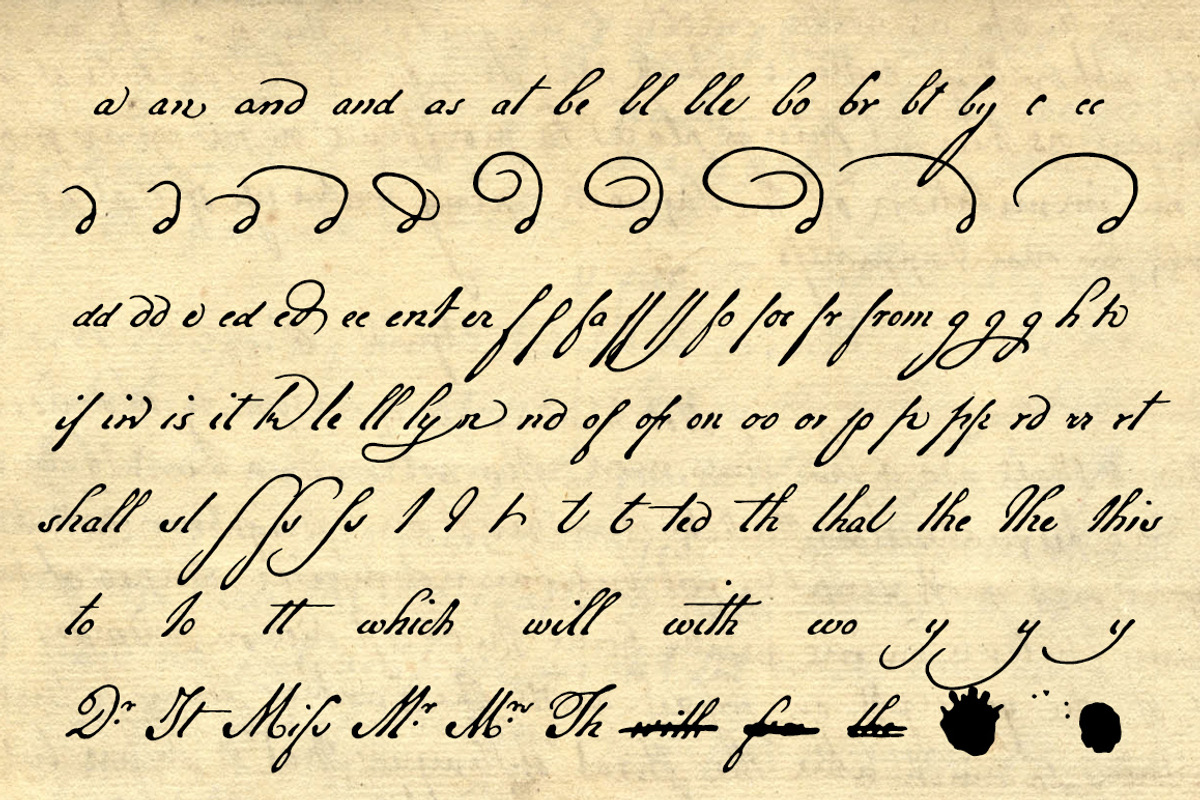 a an and and as at be bl ble bo br bt by c cc
d d d d d d d d d d
dd dd e ed ed ee ent er f f fa ff ff fo for fr from g g g h h
if in is it k le ll ly n nd of of on oo or p p pp rd rr rt
shall st ſ ſs ſs t t t t t ted th that the the this
to to tt which will with wo y y y
Dr It Miſs Mr Mrs Th with for the